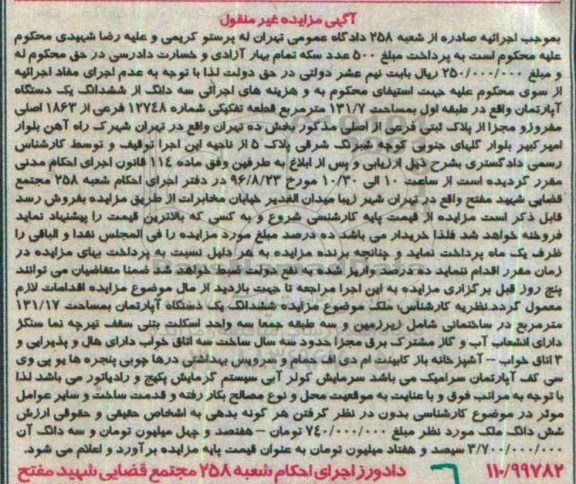 آگهی مزایده غیر منقول
بموجب اجرائیه صادره از شعبه ۲۵۸ دادگاه عمومی تهران له پرستو کریمی و علیه رضا شهبدی محکوم
علیه محکوم است به پرداخت مبلغ ۵۰۰ عدد سکه تمام بهار آزادی و خسارت دادرسی در حق محکوم له
و مبلغ ۲۵۰/۰۰۰/۰۰۰ ریال بابت نیم عشر دولتی در حق دولت لذا با توجه به عدم اجرای مفاد اجرائیه
از سوی محکوم علیه جهت استیفای محکوم به و هزینه های اجرائی سه دانگ از ششدانگ یک دستگاه
آپارتمان واقع در طبقه اول بمساحت ۱۳۱/۷ مترمربع قطعه تفکیکی شماره ۱۲۷۴۸ فرعی از ۱۸۶۳ اصلی
مفروزو مجزا از پلاک ثبتی فرعی از اصلی مذکور بخش ده تهران واقع در تهران شهرک راه آهن بلوار
امیرکبیر بلوار گلهای جنوبی کوچه شبرنگ شرقی پلاک ۵ از ناحیه این اجرا توقیف و توسط کارشناس
رسمی دادگستری بشرح ذیل ارزیابی و پس از ابلاغ به طرفین وفق ماده ۱۱۴ قانون اجرای احکام مدنی
مقرر گردیده است از ساعت ۱۰ الی ۱۰/۳۰ مورخ ۹۶/۸/۲۳ در دفتر اجرای احکام شعبه ۲۵۸ مجتمع
قضایی شهید مفتح واقع در تهران شهر زیبا میدان الغدیر خیابان مخابرات از طریق مزایده بفروش رسد
قابل ذکر است مزایده از قیمت پایه کارشنسی شروع و به کسی که بالاترین قیمت را پیشنهاد نماید
فروخته خواهد شد فلذا خریدار می باشد ده درصد مبلغ مورد مزایده را فی المجلس نقدا و الباقی را
ظرف یک ماه پرداخت نماید و چنانچه برنده مزایده به هر دلیل نسبت به پرداخت بهای مزایده در
زمان مقرر اقدام ننماید ده درصد واریز شده به نفع دولت ضبط خواهد شد ضمنا متقاضیان می توانند
پنج روز قبل برگزاری مزایده به این اجرا مراجعه تا جهت بازدید از مال موضوع مزایده اقدامات لازم
معمول گردد.نظریه کارشناس: ملک موضوع مزایده ششدانگ یک دستگاه آپارتمان بمساحت ۱۳۱/۱۷
مترمربع در ساختمانی شامل زیرزمین و سه طبقه جمعا سه واحد اسکلت بتنی سقف تیرچه نما سنگز
دارای انشعاب آب و گاز مشترک برق مجزا حدود سه سال ساخت سه اتاق خواب دارای هال و پذیرایی و
۳ اتاق خواب – آشپزخانه باز کابینت ام دی اف حمام و سرویس بهداشتی درها چوبی پنجره ها یو پی وی
سی کف آپارتمان سرامیک می باشد سرمایش کولر آبی سیستم گرمایش پکیج و رادیاتور می باشد لذا
با توجه به مراتب فوق و با عنایت به موقعیت محل و نوع مصالح بکار رفته و قدمت ساخت و سایر عوامل
موثر در موضوع کارشناسی بدون در نظر گرفتن هر گونه بدهی به اشخاص حقیقی و حقوقی ارزش
شش دانگ ملک مورد نظر مبلغ ۷۴۰/۰۰۰/۰۰۰ تومان – هفتصد و چهل میلیون تومان و سه دانگ آن
۳/۷۰۰/۰۰۰/۰۰۰ سیصد و هفتاد میلیون تومان به عنوان قیمت پایه مزایده برآورد و اعلام می شود.
۱۱۰/۹۹۷۸۲ دادورز اجرای احکام شعبه ۲۵۸ مجتمع قضایی شهید مفتح